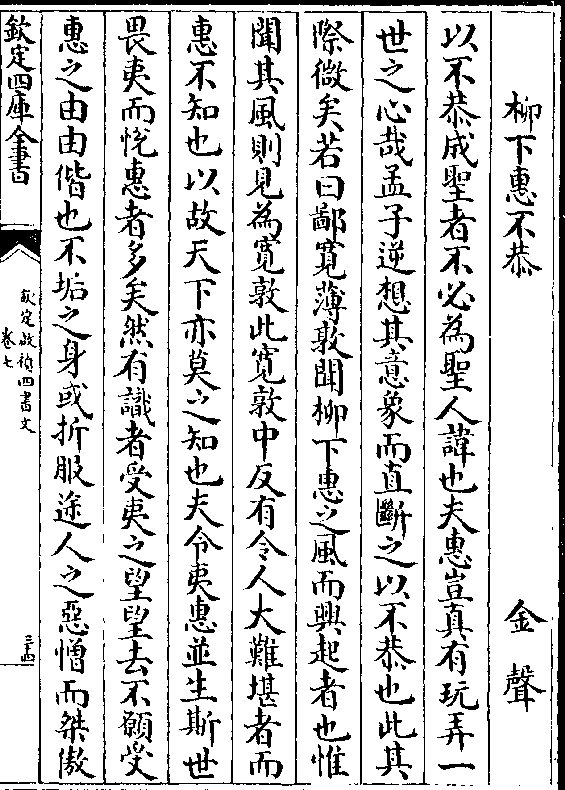 柳下惠不恭　金聲
以不恭成聖者不必為聖人諱也夫惠豈真有玩弄一
世之心哉孟子逆想其意象而直斷之以不恭也此其
際微矣若曰鄙寬薄敦聞柳下惠之風而興起者也惟
聞其風則見為寬敦此寬敦中反有令人大難堪者而
惠不知也以故天下亦莫之知也夫令夷惠並生斯世
畏夷而悅惠者多矣然有識者受夷之望望去不願受
惠之由由偕也不垢之身或折服途人之惡憎而桀傲
欽定四庫全書
欽定啟禎四書文
卷七
三十四